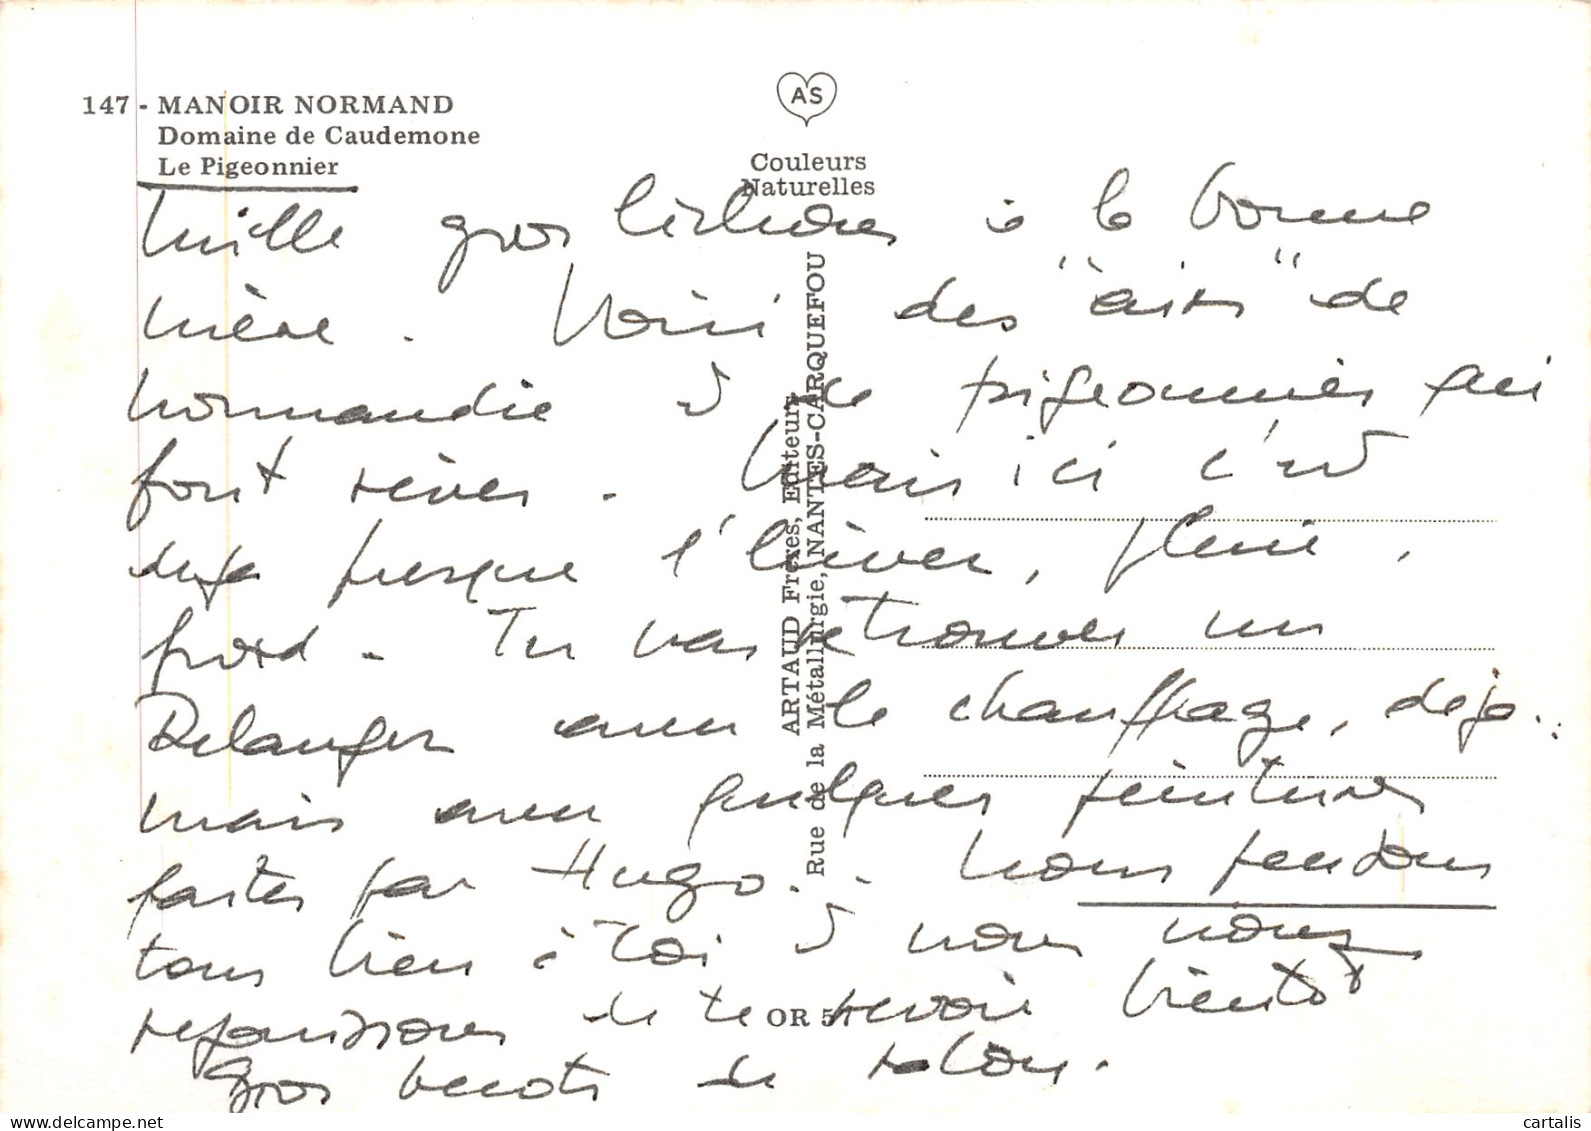 147 - MANOIR NORMAND
Domaine de Caudemone
Le Pigeonnier
AS
Couleurs
Naturelles
ARTAUD Frères, Editeurs
Rue de la Métallurgie, NANTES-CARQUEFOU
Mille gros à la bonne
mère. Voici des "airs" de
Normandie et de pigeonnier qui
font rêver. Mais ici c'est
déjà presque l'hiver, pluie,
froid - Tu vas retrouver un
Belanger avec le chauffage, déjà..
mais avec quelques peintures
faites par Hugo.. Nous pensons
tous bien à toi et nous nous
réjouissons de te revoir bientôt
Gros de
OR 57
cartalis